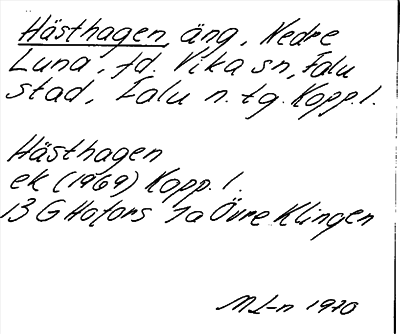 Hästhagen, äng, Nedre
Luna, fd. Vika sn, Falu
stad, Falu n. tg. Kopp. l.
Hästhagen
ek (1969) Kopp. l.
13 G Hofors 7a Övre Klingen
1970